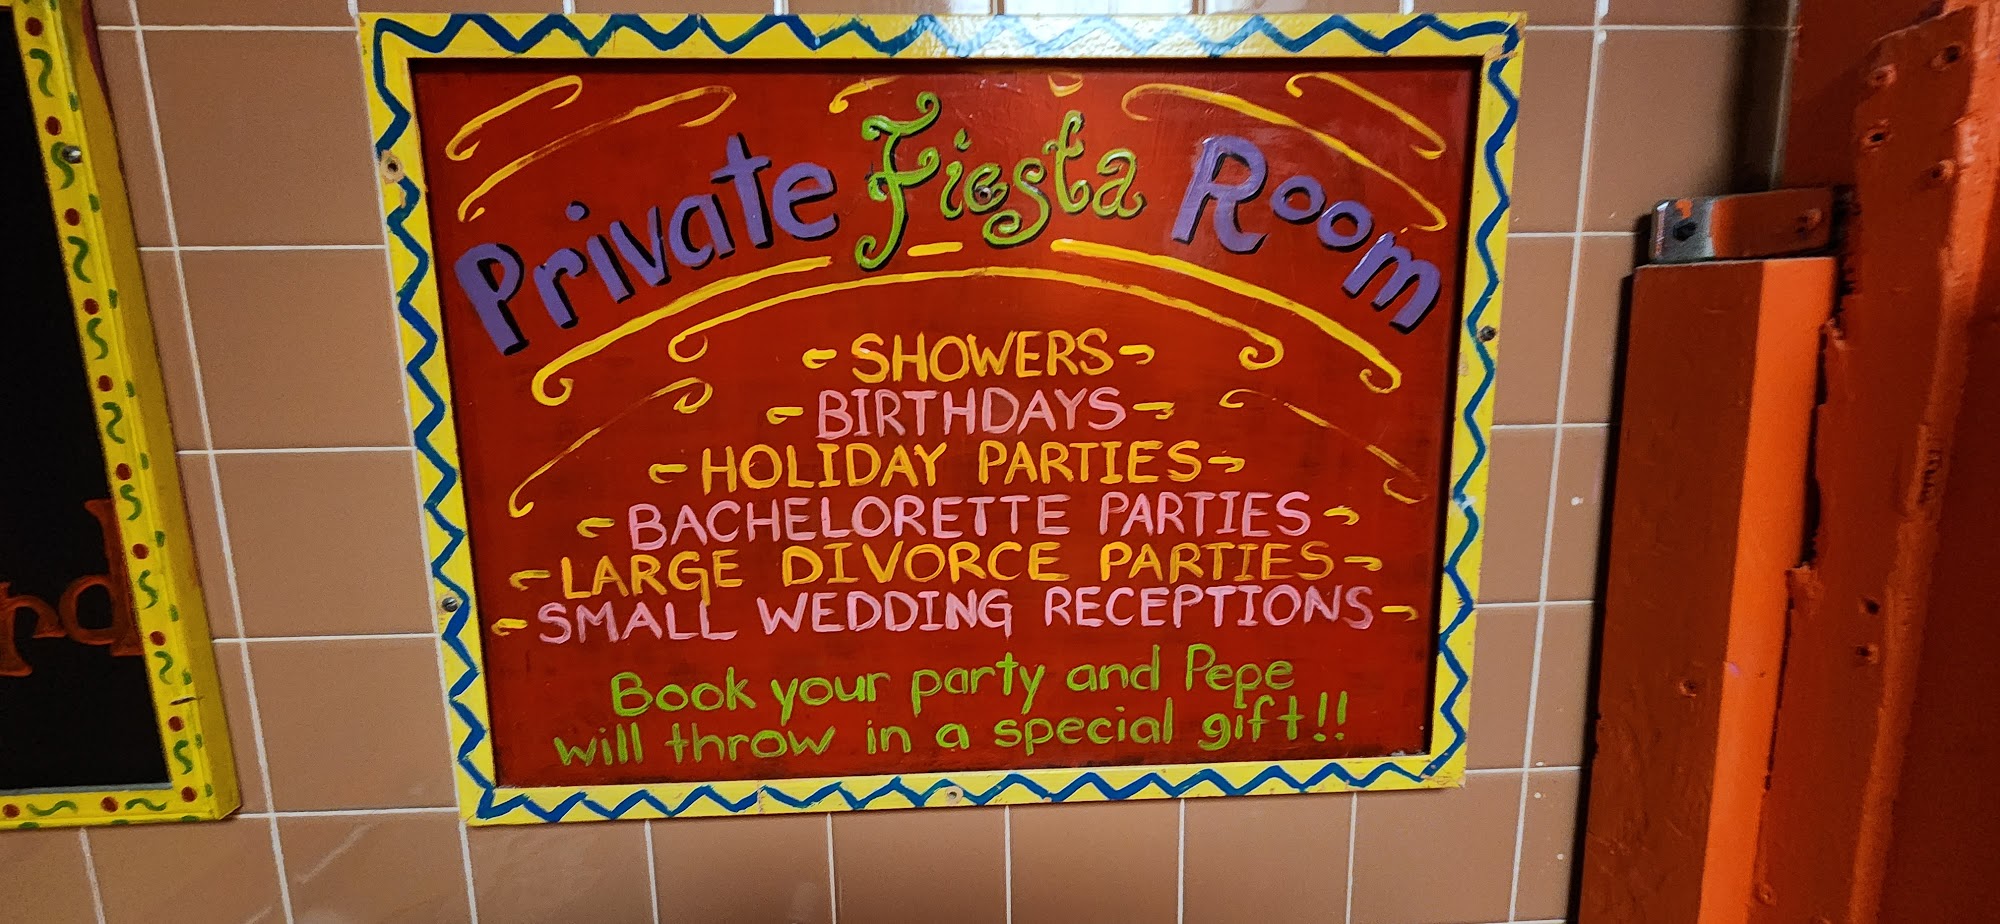 Private Fiesta Room
SHOWERS
BIRTHDAYS
HOLIDAY PARTIES
BACHELORETTE PARTIES
LARGE DIVORCE PARTIES
SMALL WEDDING RECEPTIONS
Book your party and Pepe
will throw in a special gift!!